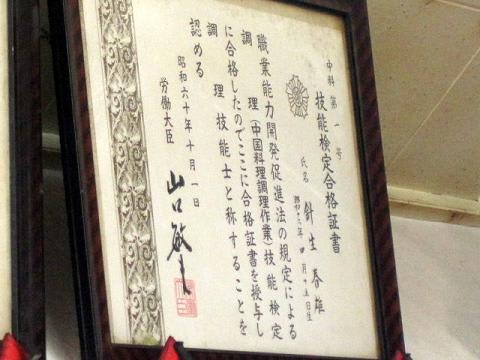 中科第一号
技能検定合格証書
氏名 針生春雄
昭和十三年四月十五日生
職業能力開発促進法の規定による
調理(中国料理調理作業)技能検定
に合格したのでここに合格証書を授与し
調理技能士と称することを
認める
昭和六十年十月一日
労働大臣 山口敏夫